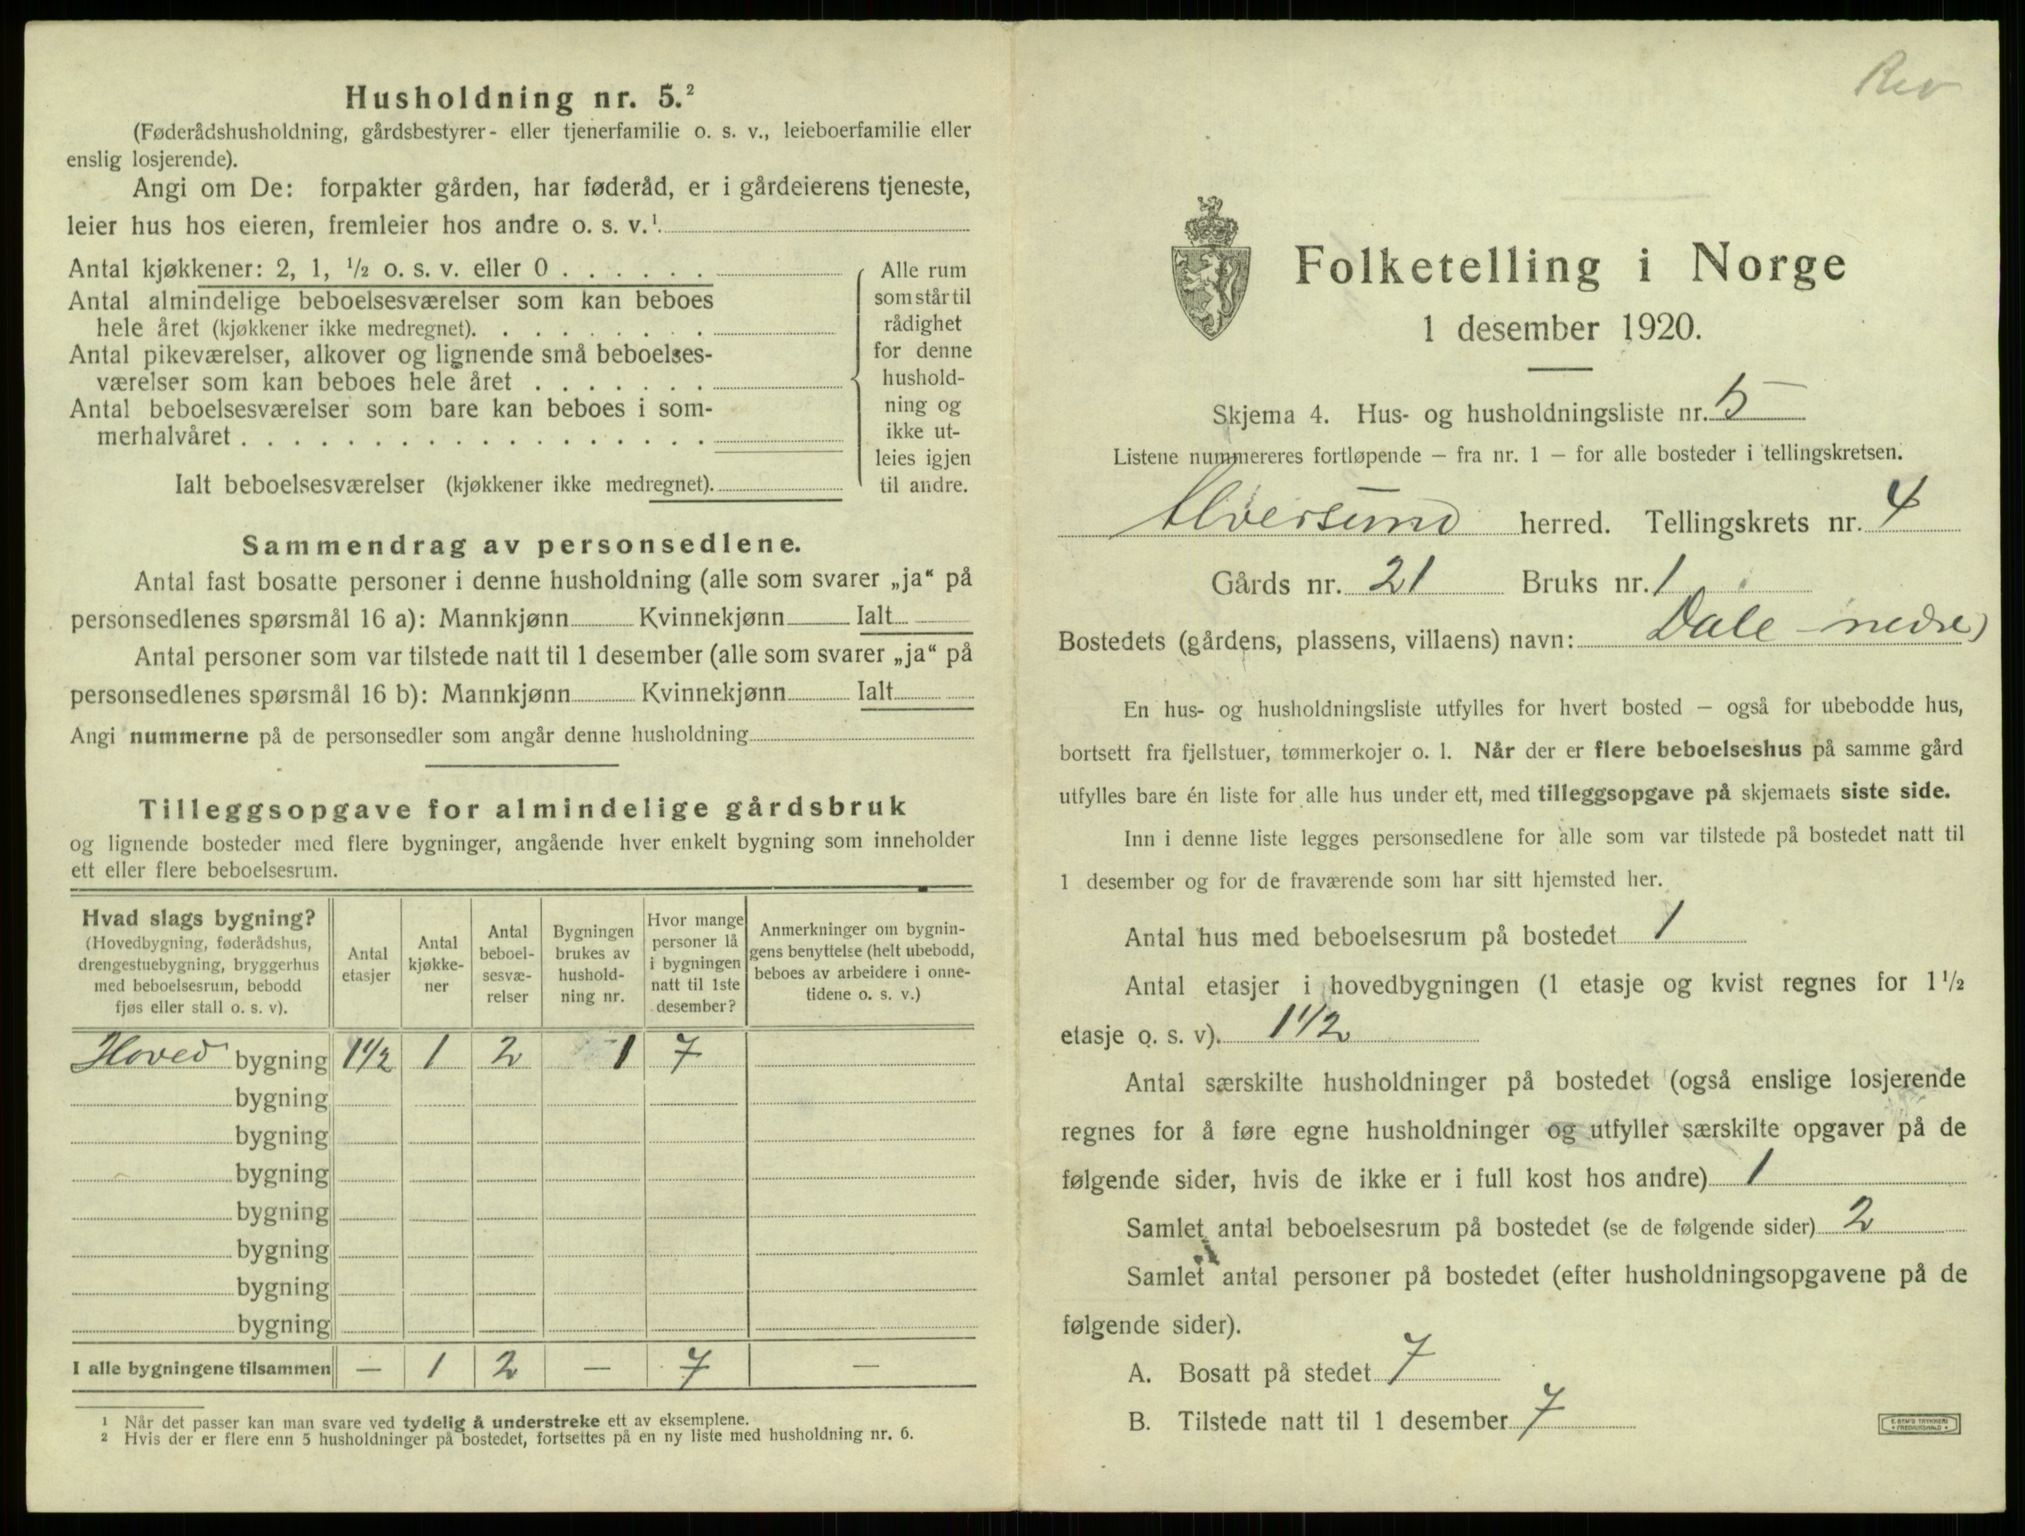 Husholdning nr. 5.²
(Føderådshusholdning, gårdsbestyrer- eller tjenerfamilie o. s. v., leieboerfamilie eller
enslig losjerende).
Angi om De: forpakter gården, har føderåd, er i gårdeierens tjeneste,
leier hus hos eieren, fremleier hos andre o. s. v.¹
Antal kjøkkener: 2, 1, ½ o. s. v. eller 0 . . . . . .
Antal almindelige beboelsesværelser som kan beboes
hele året (kjøkkener ikke medregnet). . . . . . . . .
Antal pikeværelser, alkover og lignende små beboelses-
værelser som kan beboes hele året . . . . . . .
Antal beboelsesværelser som bare kan beboes i som-
merhalvåret . . . . . . . . . . . . . . . . . .
Ialt beboelsesværelser (kjøkkener ikke medregnet).
Alle rum
som står til
rådighet
for denne
hushold-
ning og
ikke ut-
leies igjen
til andre.
Sammendrag av personsedlene.
Antal fast bosatte personer i denne husholdning (alle som svarer „ja“ på
personsedlenes spørsmål 16 a): Mannkjønn Kvinnekjønn Ialt
Antal personer som var tilstede natt til 1 desember (alle som svarer „ja“ på
personsedlenes spørsmål 16 b): Mannkjønn Kvinnekjønn Ialt
Angi nummerne på de personsedler som angår denne husholdning
Tilleggsopgave for almindelige gårdsbruk
og lignende bosteder med flere bygninger, angående hver enkelt bygning som inneholder
ett eller flere beboelsesrum.
Hvad slags bygning?
(Hovedbygning, føderådshus,
drengestuebygning, bryggerhus
med beboelsesrum, bebodd
fjøs eller stall o. s. v).
Antal
etasjer
Antal
kjøkke-
ner
Antal
beboel-
sesvæ-
relser
Bygningen
brukes av
hushold-
ning nr.
Hvor mange
personer lå
i bygningen
natt til 1ste
desember?
Anmerkninger om bygnin-
gens benyttelse (helt ubebodd,
beboes av arbeidere i onne-
tidene o. s. v.)
Hoved bygning 1½ 1 2 1 7
bygning
bygning
bygning
bygning
bygning
bygning
bygning
I alle bygningene tilsammen — 1 2 — 7 —
¹ Når det passer kan man svare ved tydelig å understreke ett av eksemplene.
² Hvis der er flere enn 5 husholdninger på bostedet, fortsettes på en ny liste med husholdning nr. 6.
Rev
Folketelling i Norge
1 desember 1920.
Skjema 4. Hus- og husholdningsliste nr. 5
Listene nummereres fortløpende — fra nr. 1 — for alle bosteder i tellingskretsen.
Alversund herred. Tellingskrets nr. 4
Gårds nr. 21 Bruks nr. 1
Bostedets (gårdens, plassens, villaens) navn: Dale nedre
En hus- og husholdningsliste utfylles for hvert bosted — også for ubebodde hus,
bortsett fra fjellstuer, tømmerkojer o. l. Når der er flere beboelseshus på samme gård
utfylles bare én liste for alle hus under ett, med tilleggsopgave på skjemaets siste side.
Inn i denne liste legges personsedlene for alle som var tilstede på bostedet natt til
1 desember og for de fraværende som har sitt hjemsted her.
Antal hus med beboelsesrum på bostedet 1
Antal etasjer i hovedbygningen (1 etasje og kvist regnes for 1½
etasje o. s. v). 1½
Antal særskilte husholdninger på bostedet (også enslige losjerende
regnes for å føre egne husholdninger og utfyller særskilte opgaver på de
følgende sider, hvis de ikke er i full kost hos andre) 1
Samlet antal beboelsesrum på bostedet (se de følgende sider) 2
Samlet antal personer på bostedet (efter husholdningsopgavene på de
følgende sider).
A. Bosatt på stedet 7
B. Tilstede natt til 1 desember 7